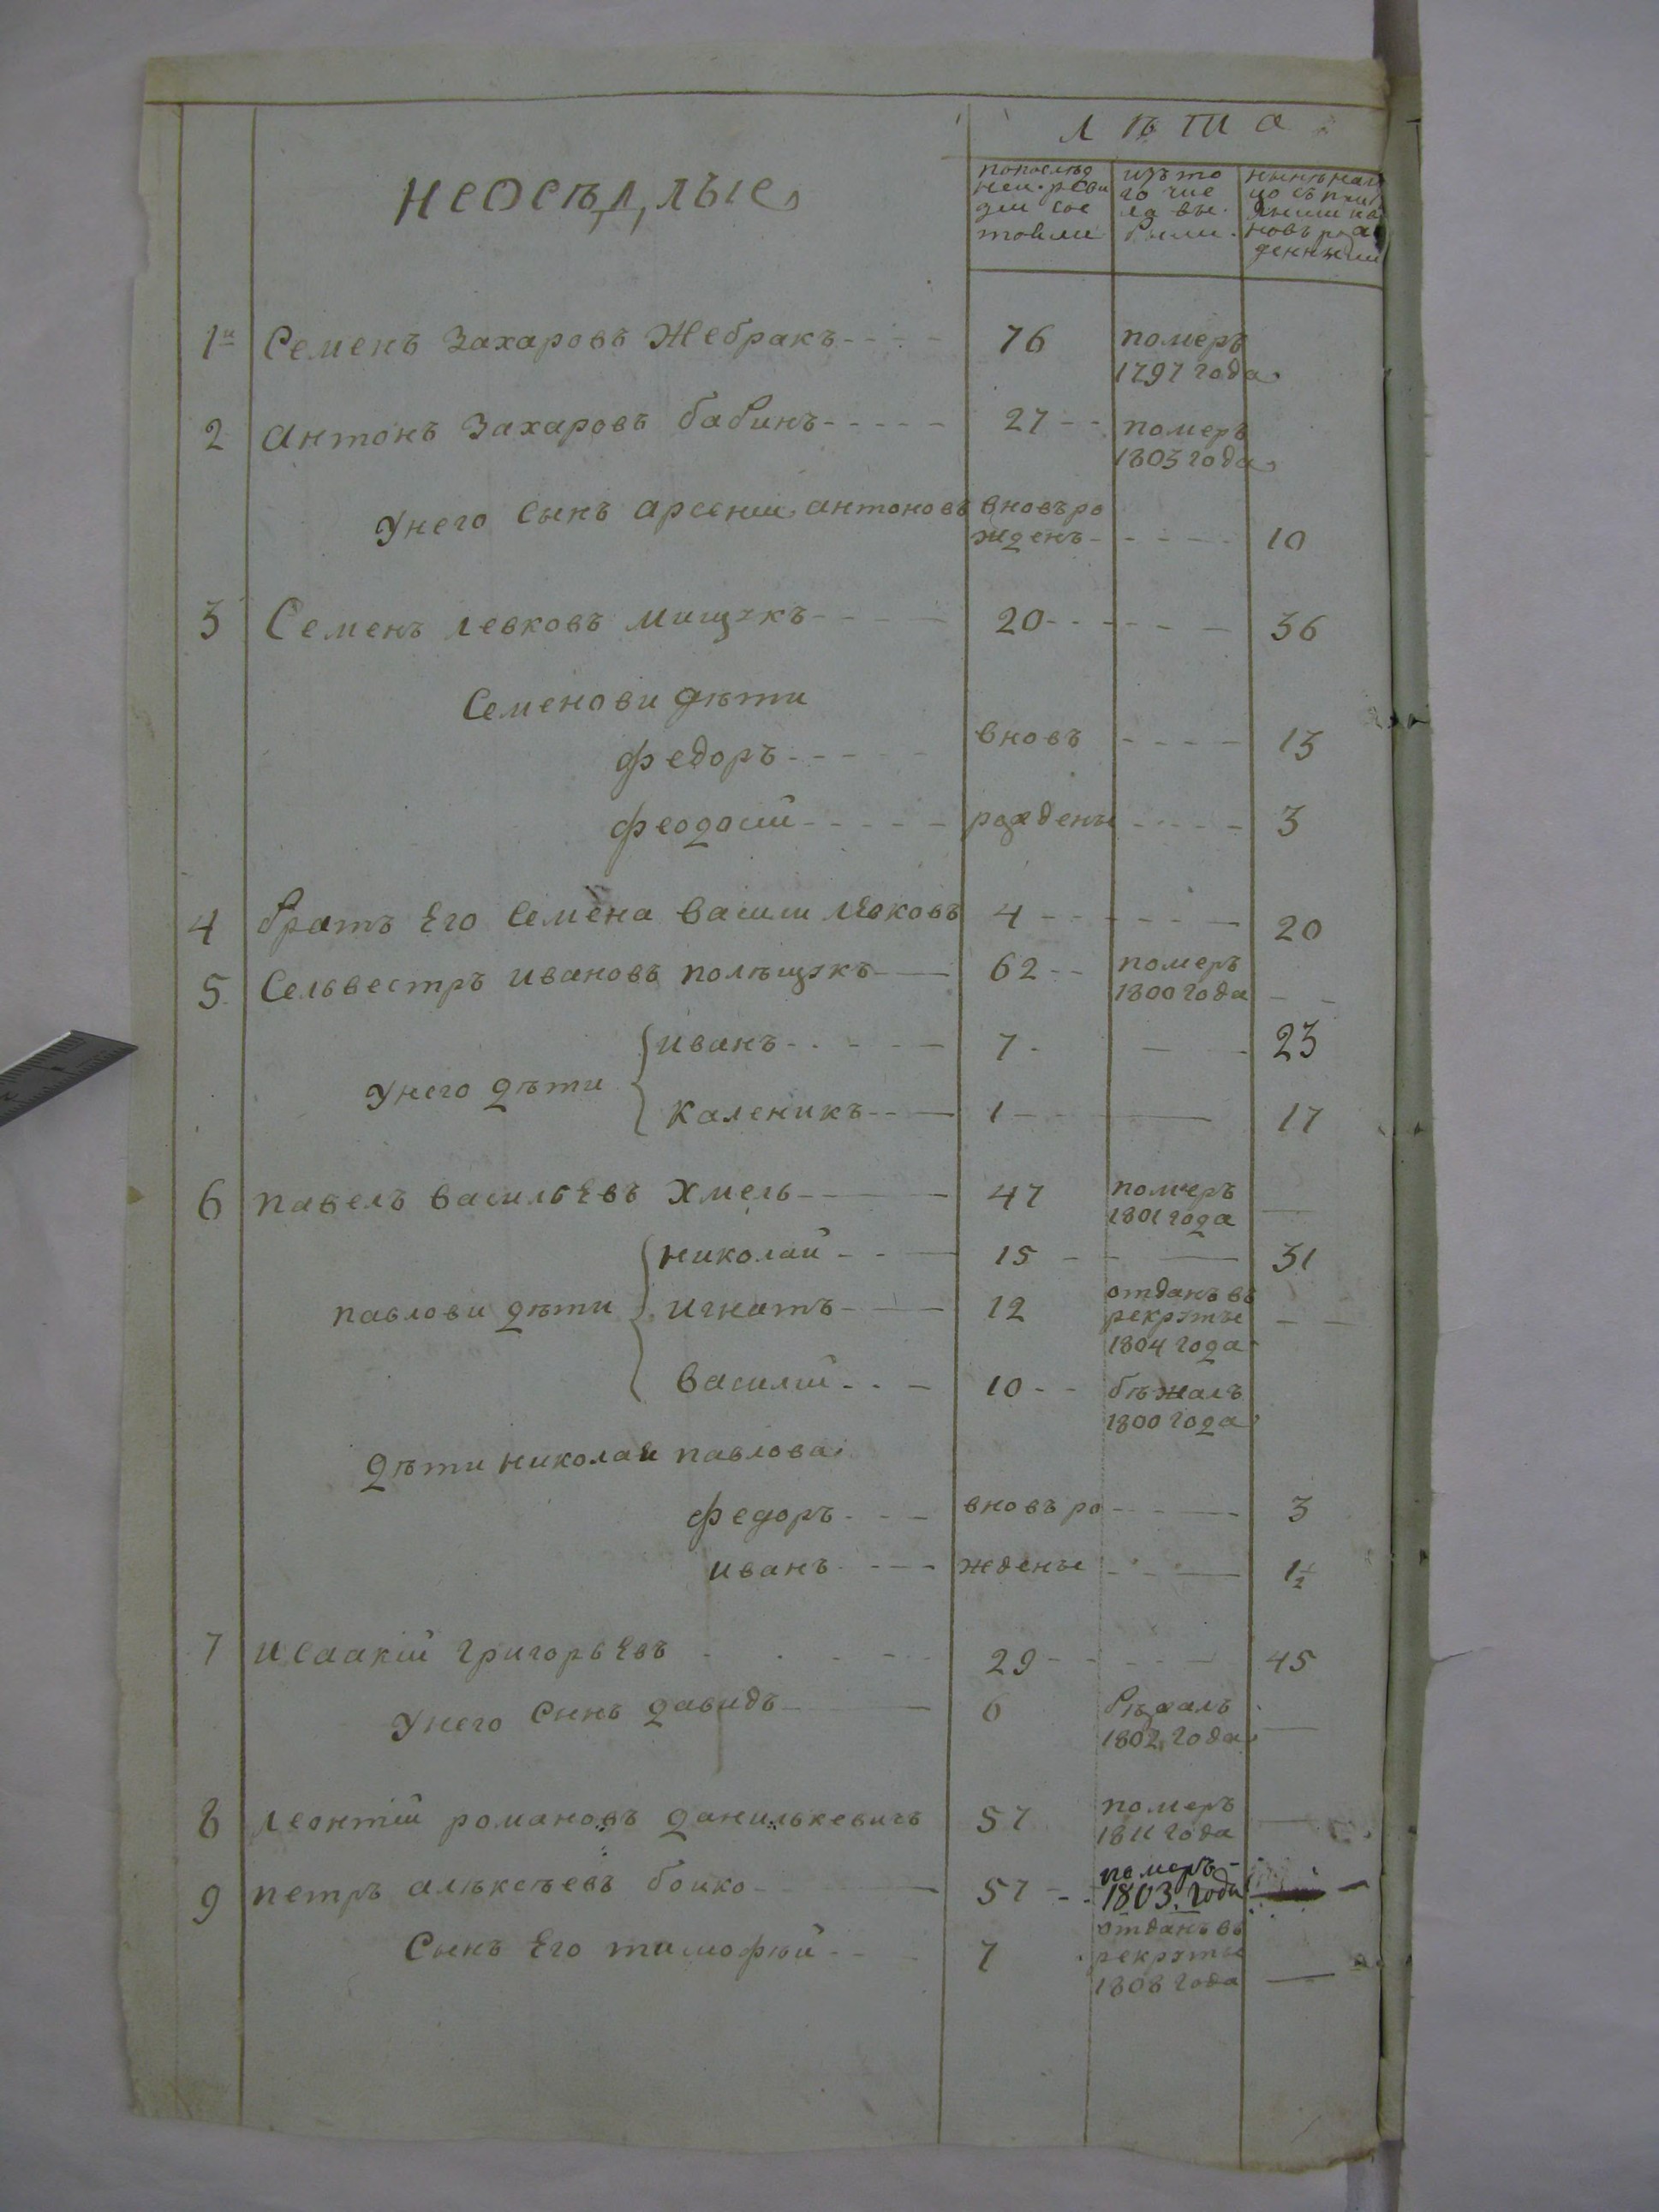 лѣта
неосѣдлые
попослѣд
ней реви
зіи сос
тояли
изъ то
го чис
ла вы
были
нынѣ на ли
цо съ при
новъ рож
денными
1й Семенъ Захаровъ Жебракъ 76 померъ
1797 года
2 антонъ Захаровъ бабинъ 27 померъ
1803 года
Унего сынъ арсеній антоновъ вновъ ро
жденъ 10
3 Семенъ левковъ мищукъ 20 36
Семенови дѣти
федоръ вновъ 13
феодосій рождены 3
4 братъ Его Семена васили левковъ 4 20
5 Селвестръ ивановъ полѣщукъ 62 померъ
1800 года
Унего дѣти
иванъ 7 23
каленикъ 1 17
6 павелъ васильевъ хмель 47 померъ
1801 года
павлови дѣти
николай 15 31
игнатъ 12 отданъ въ
рекруты
1804 года
василій 10 бѣжалъ
1800 года
дѣти николая павлова
федоръ вновъ ро 3
иванъ ждены 1½
7 исаакій григорьевъ 29 45
Унего сынъ давидъ 6 бѣжалъ
1802 года
8 леонтій романовъ данилькевичъ 57 померъ
1811 года
9 петръ алѣксѣевъ бойко 57 померъ
1803 года
Сынъ Его тимофѣй 7 отданъ въ
рекруты
1808 года